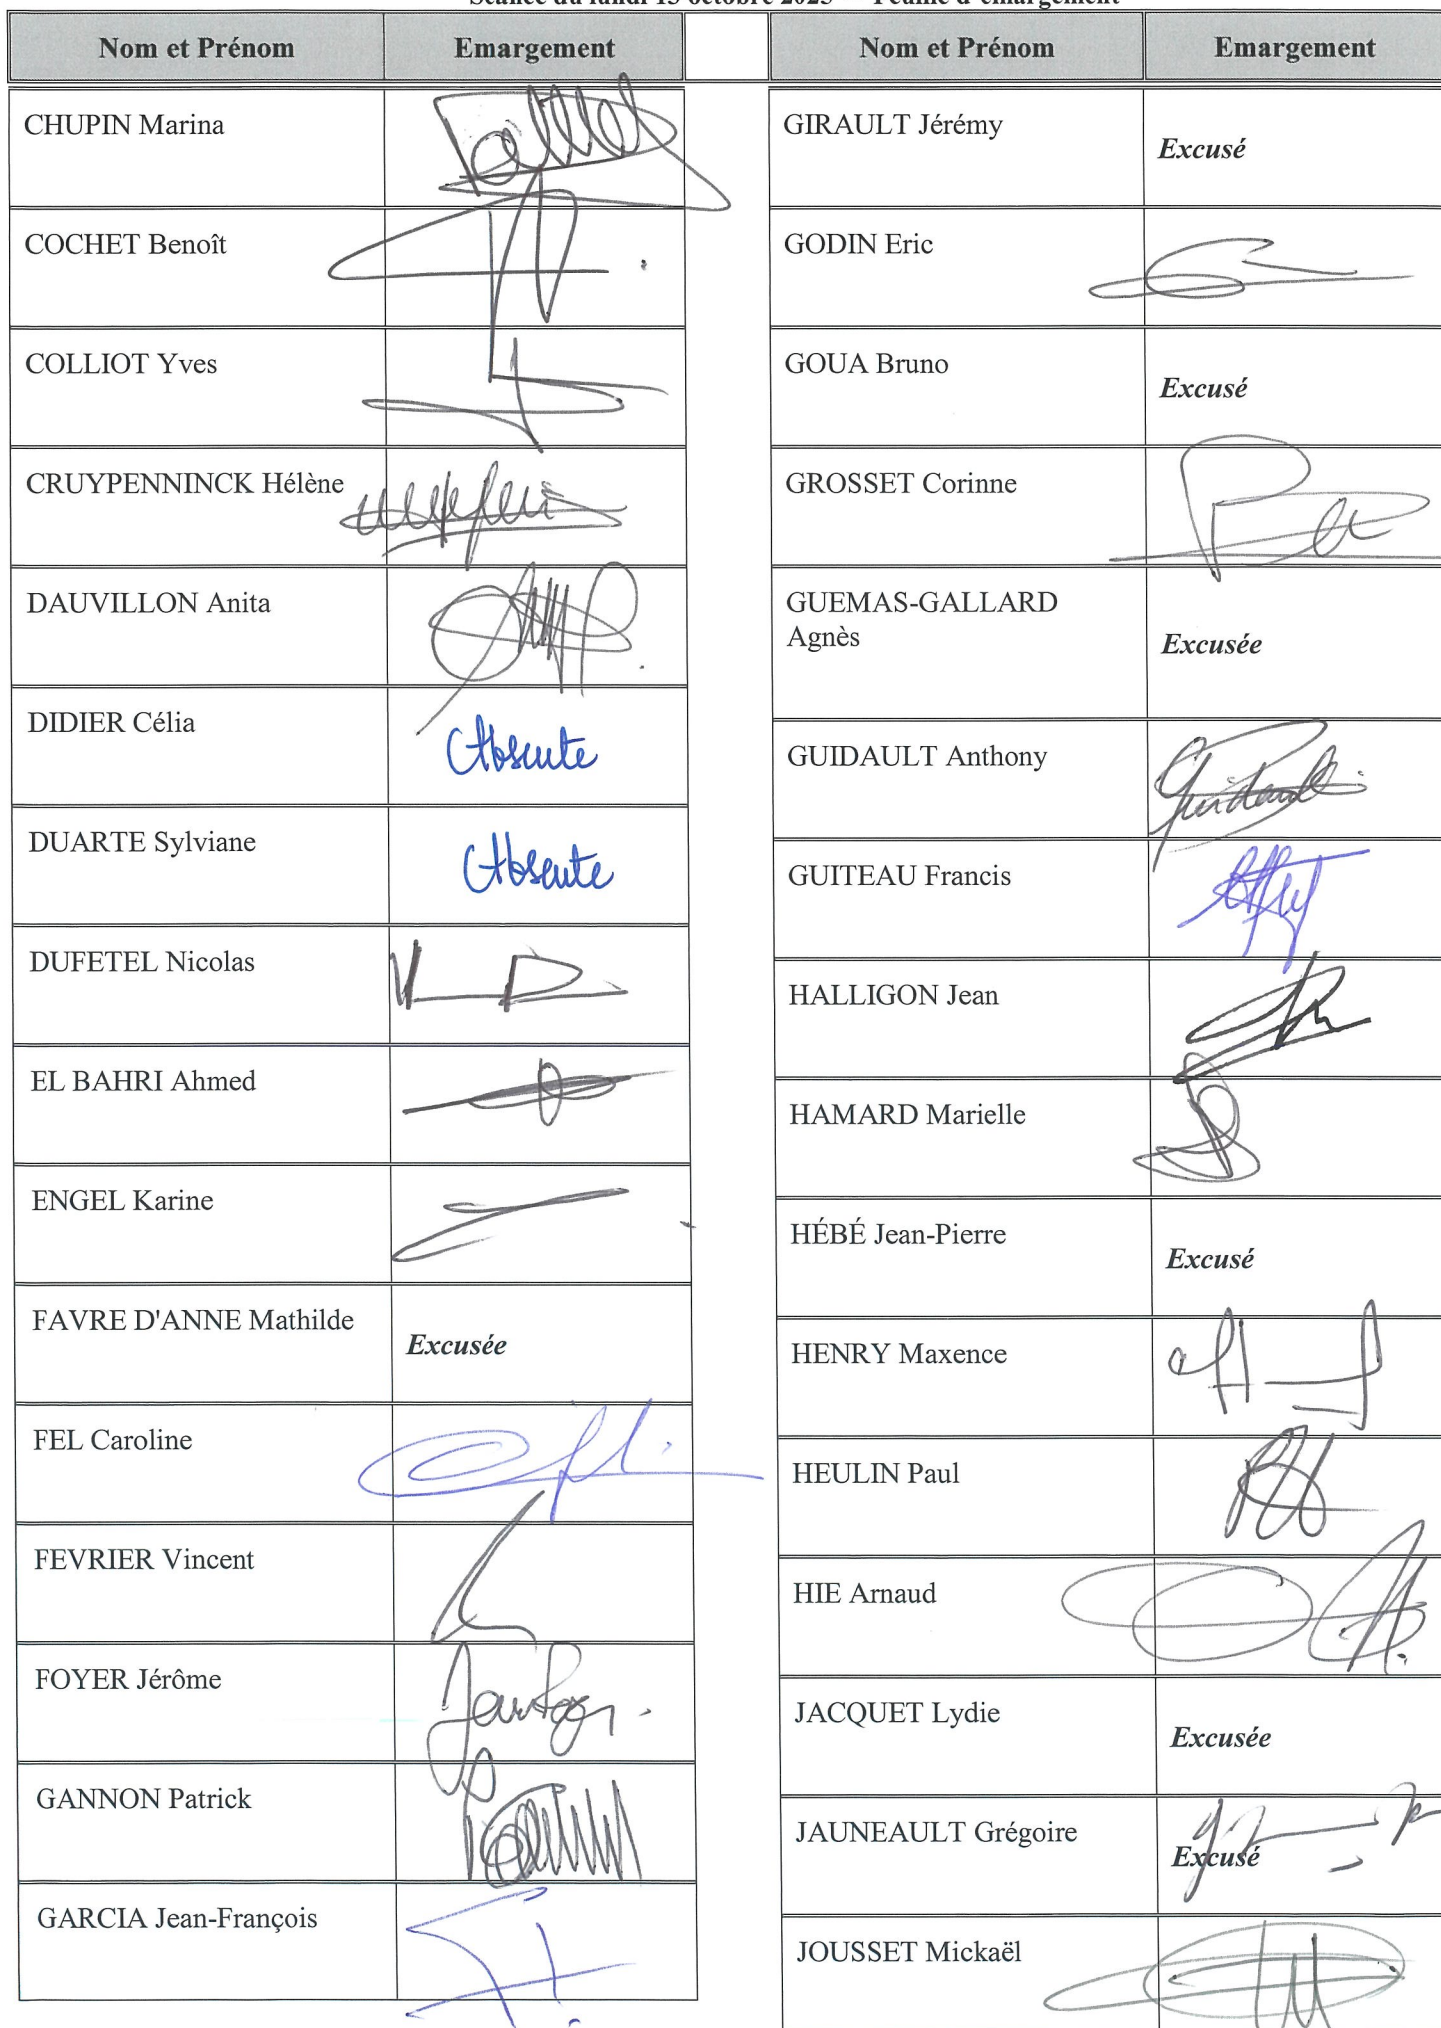 Séance du lundi 13 octobre 2025 — Feuille d'émargement
Nom et Prénom Emargement
CHUPIN Marina
COCHET Benoît
COLLIOT Yves
CRUYPENNINCK Hélène
DAUVILLON Anita
DIDIER Célia Absente
DUARTE Sylviane Absente
DUFETEL Nicolas
EL BAHRI Ahmed
ENGEL Karine
FAVRE D'ANNE Mathilde Excusée
FEL Caroline
FEVRIER Vincent
FOYER Jérôme
GANNON Patrick
GARCIA Jean-François
Nom et Prénom Emargement
GIRAULT Jérémy Excusé
GODIN Eric
GOUA Bruno Excusé
GROSSET Corinne
GUEMAS-GALLARD
Agnès Excusée
GUIDAULT Anthony
GUITEAU Francis
HALLIGON Jean
HAMARD Marielle
HÉBÉ Jean-Pierre Excusé
HENRY Maxence
HEULIN Paul
HIE Arnaud
JACQUET Lydie Excusée
JAUNEAULT Grégoire Excusé
JOUSSET Mickaël